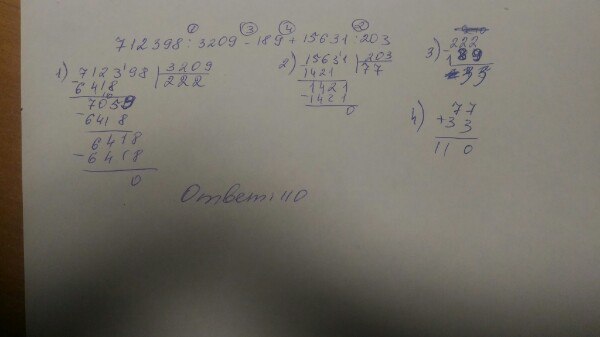 ① ③ ④ ②
712398 : 3209 - 189 + 15631 : 203
1) 712398 | 3209
- 6418 | 222
7059
- 6418
6418
- 6418
0
2) 15631 | 203
1421 | 77
1421
- 1421
0
3) 222
- 189
33
4) 77
+ 33
110
Ответ: 110